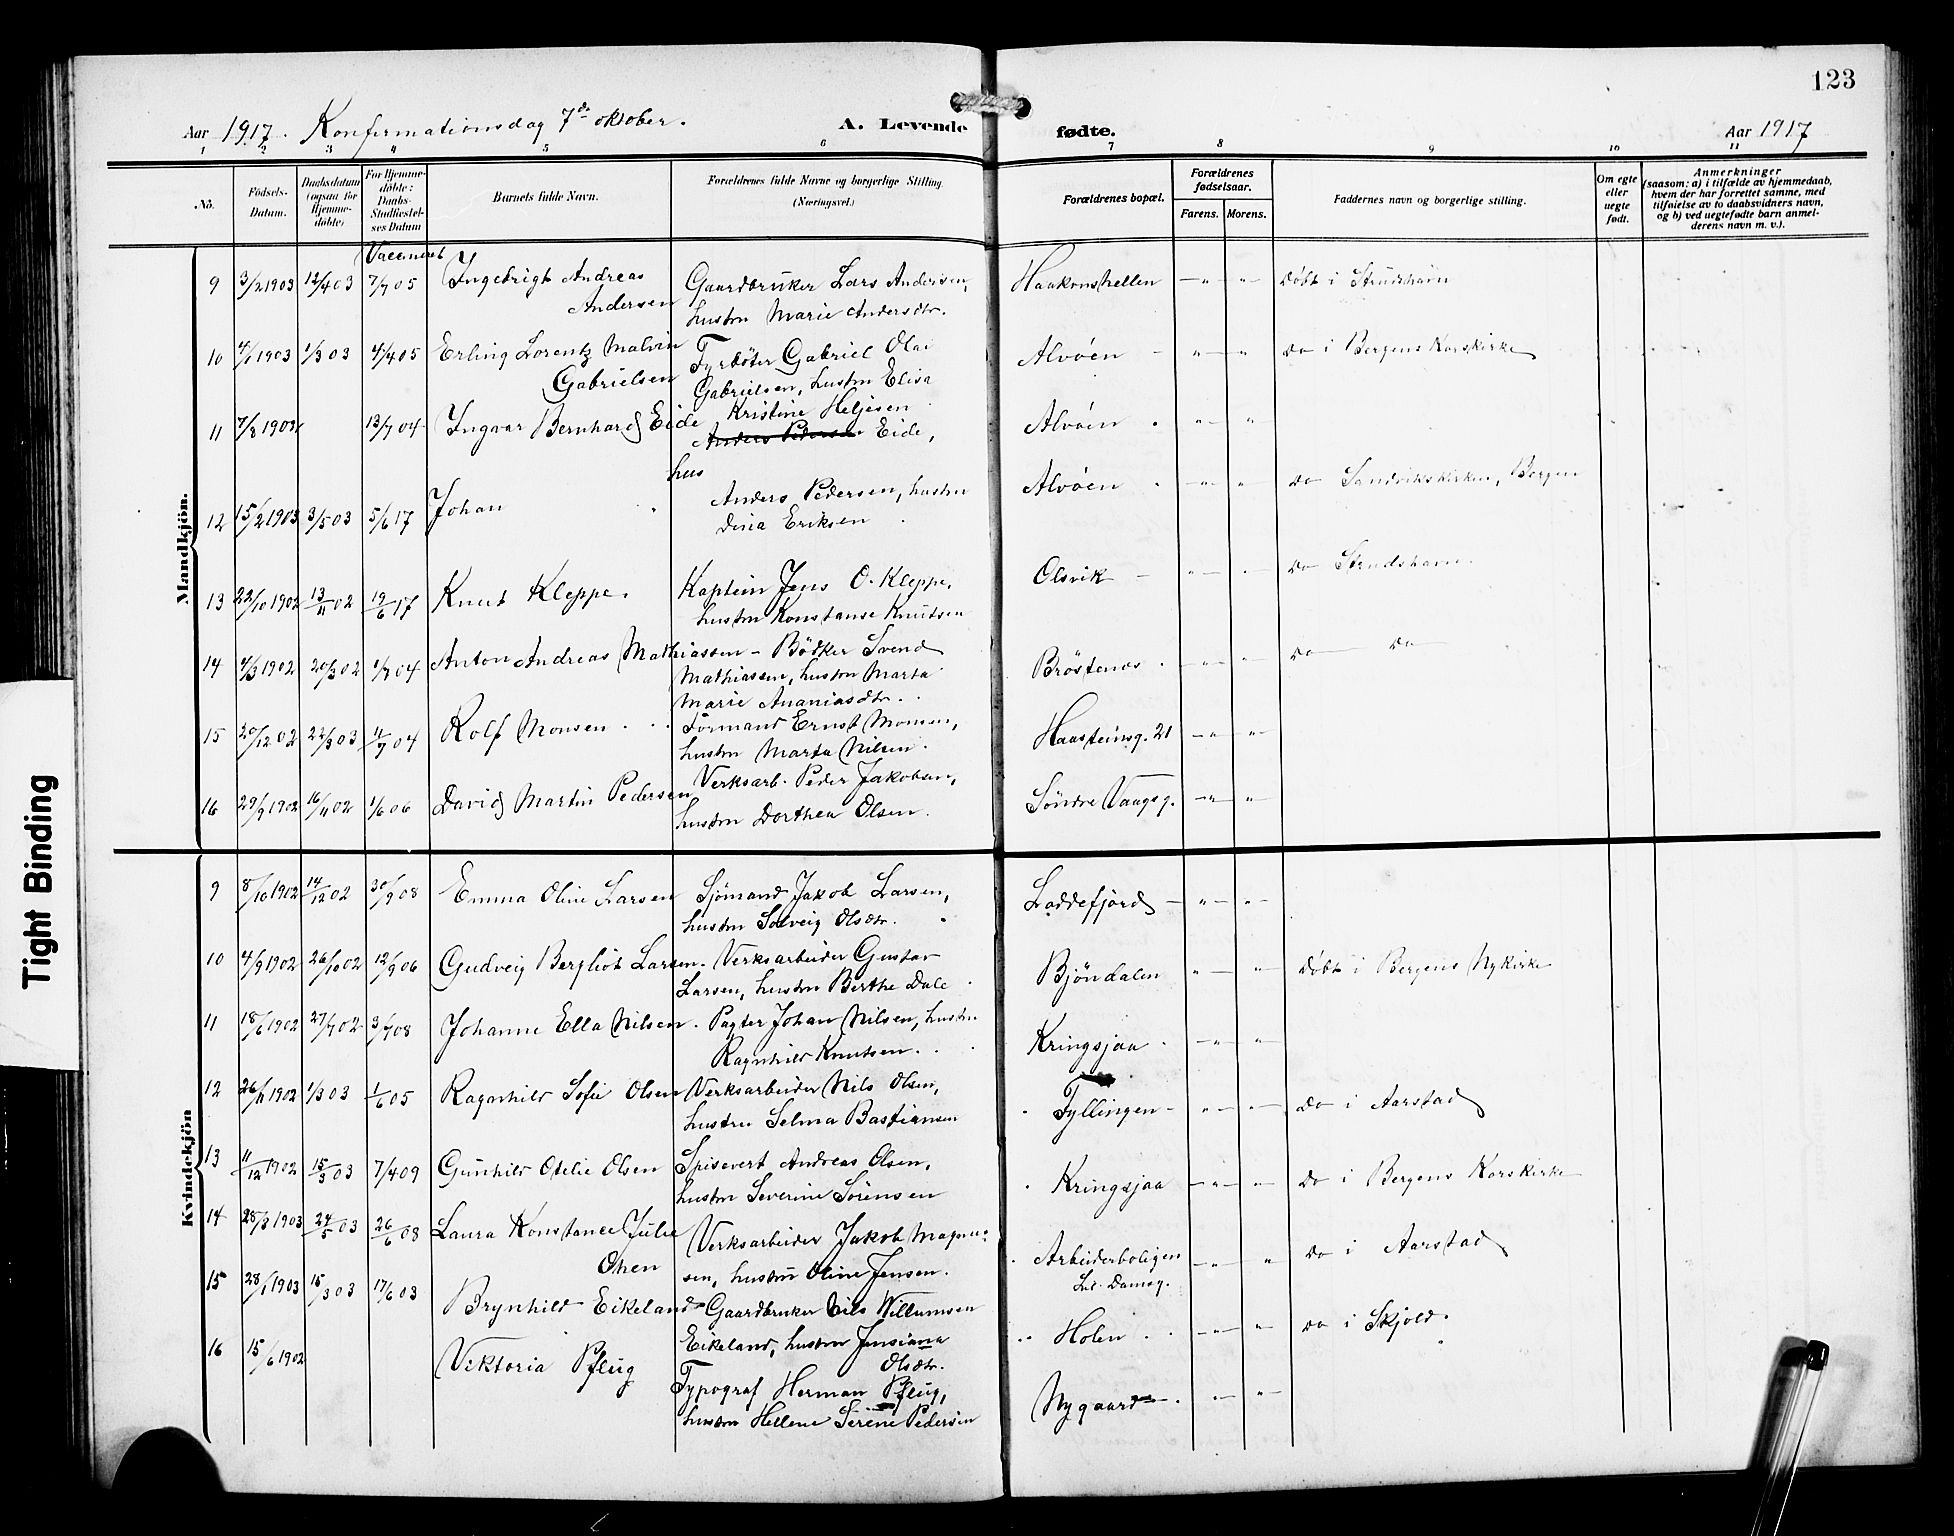 123
Aar 1917. Konfermationsdag 7de oktober. A. Levende fødte. Aar 1917
1 2 3 4 5 6 7 8 9 10 11
No. Födsels-Datum. Daabsdatum (ogsaa for Hjemmedöbte) For Hjemmedöbte: Daabs-Stadfæstelses Datum Barnets fulde Navn. Forældrenes fulde Navne og borgerlige Stilling. (Næringsvei.) Forældrenes bopæl. Forældrenes fødselsaar. Farens. Morens. Faddernes navn og borgerlige stilling. Om egte eller uegte født. Anmerkninger (saasom: a) i tilfælde av hjemmedaab, hvem der har forrettet samme, med tilføielse av to daabsvidners navn, og b) ved uegtefødte barn anmelderens navn m. v.).
Mandkjön.
9 3/2 1903 12/4 03 7/7 05 Ingebrigt Andreas Gaardbruker Lars Andersen, Haakonshellen — " — " Döbt i Strudshavn
Andersen hustru Marie Andersdtr.
10 4/1 1903 1/3 03 4/4 05 Erling Lorentz Malvin Fyrböter Gabriel Olai Alvöen — " — " Do i Bergens Korskirke
Gabrielsen Gabrielsen, hustru Elisa
Kristine Heljesen
11 7/8 1903 13/7 04 Ingvar Bernhard Eide Anders Pedersen Eide, Alvöen — " — "
hus
12 15/2 1903 3/5 03 5/6 17 Johan Anders Pedersen, hustru Alvöen — " — " Do Sandvikskirken, Bergen
Dina Eriksen
13 22/10 1902 13/11 02 19/6 17 Knut Kleppe. Kaptein Jens O. Kleppe, Olsvik — " — " Do Strudshavn.
hustru Konstanse Knutsen
14 4/3 1902 20/3 02 1/7 04 Anton Andreas Mathiassen — Bödker Svend Bröstenes — " — " Do — Do
Mathiassen, hustru Marta
Marie Ananiasdtr.
15 20/12 02 22/3 03 11/7 04 Rolf Monsen Formand Ernst Monsen, Haasteinsg. 21 — " — "
hustru Marta Nilsen.
16 29/9 1902 16/11 02 1/6 06 David Martin Pedersen Verksarb. Peder Jakobsen, Söndre Vaagsg. — " — "
hustru Dorthea Olsen.
Kvindekjön
9 8/10 1902 14/12 02 30/9 08 Emma Oline Larsen Sjömand Jakob Larsen, Loddefjord — " — "
hustru Solveig Olsdtr.
10 4/9 1902 26/10 02 12/9 06 Gudveig Bergliot Larsen. Verksarbeider Gustav Bjöndalen " — " Döbt i Bergens Nykirke
Larsen, hustru Berthe Dale
11 18/6 1902 27/7 02 3/7 08 Johanne Ella Nilsen. Pagter Johan Nilsen, hustru Kringsjaa — " — "
Ragnhild Knutsen.
12 26/11 1902 1/3 03 1/6 05 Ragnhild Sofie Olsen Verksarbeider Nils Olsen, Fyllingen — " — " — Do i Aarstad
hustru Selma Bastiansen
13 11/12 1902 15/3 03 7/4 09 Gunhild Otelie Olsen Spisevert Andreas Olsen, Kringsjaa — " — " Do i Bergens Korskirke
hustru Severine Sörensen
14 28/3 1903 24/5 03 26/6 08 Laura Konstance Julie Verksarbeider Jakob Magnus- Arbeiderboligen — " — " Do i Aarstad
Olsen sen, hustru Oline Jensen. Lil. Damsg.
15 28/1 1903 15/3 03 17/6 03 Brynhild Eikeland Gaardbruker Nils Villumsen Holen — " — " Do i Skjold.
Eikeland, hustru Jensiana
Olsdtr.
16 15/6 1902 Viktoria Pflug Typograf Herman Pflug, Nygaard — " — "
hustru Hellene Serene Pedersen
Tight Binding